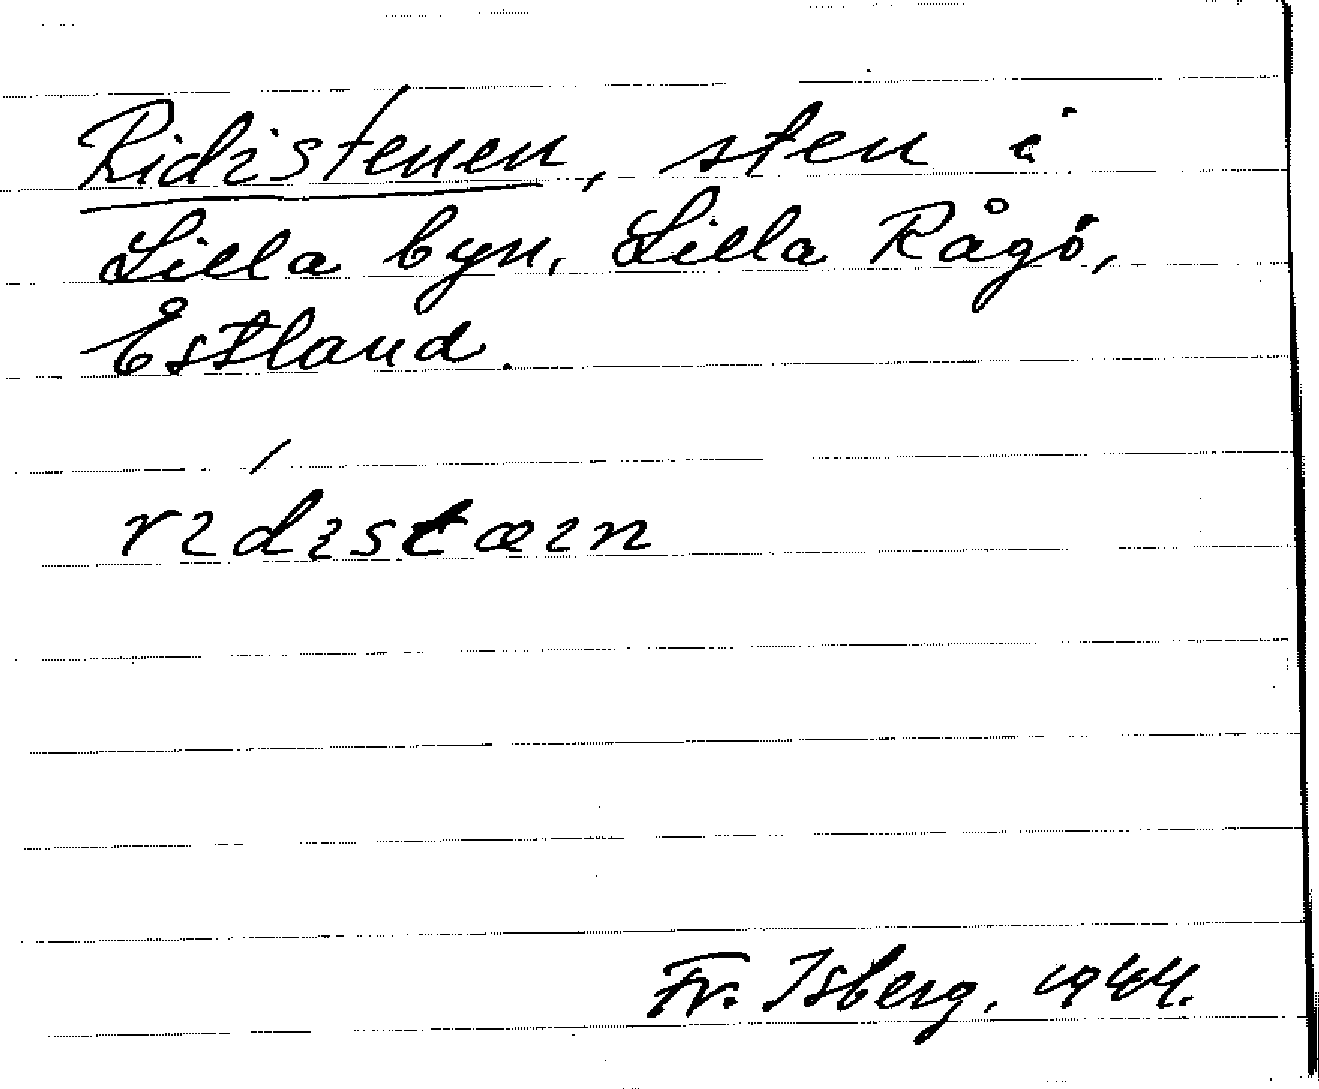 Ridistenen, sten i
Lilla byn, Lilla Rågö,
Estland.
rıdıstæın
Fr. Isberg, 1944.